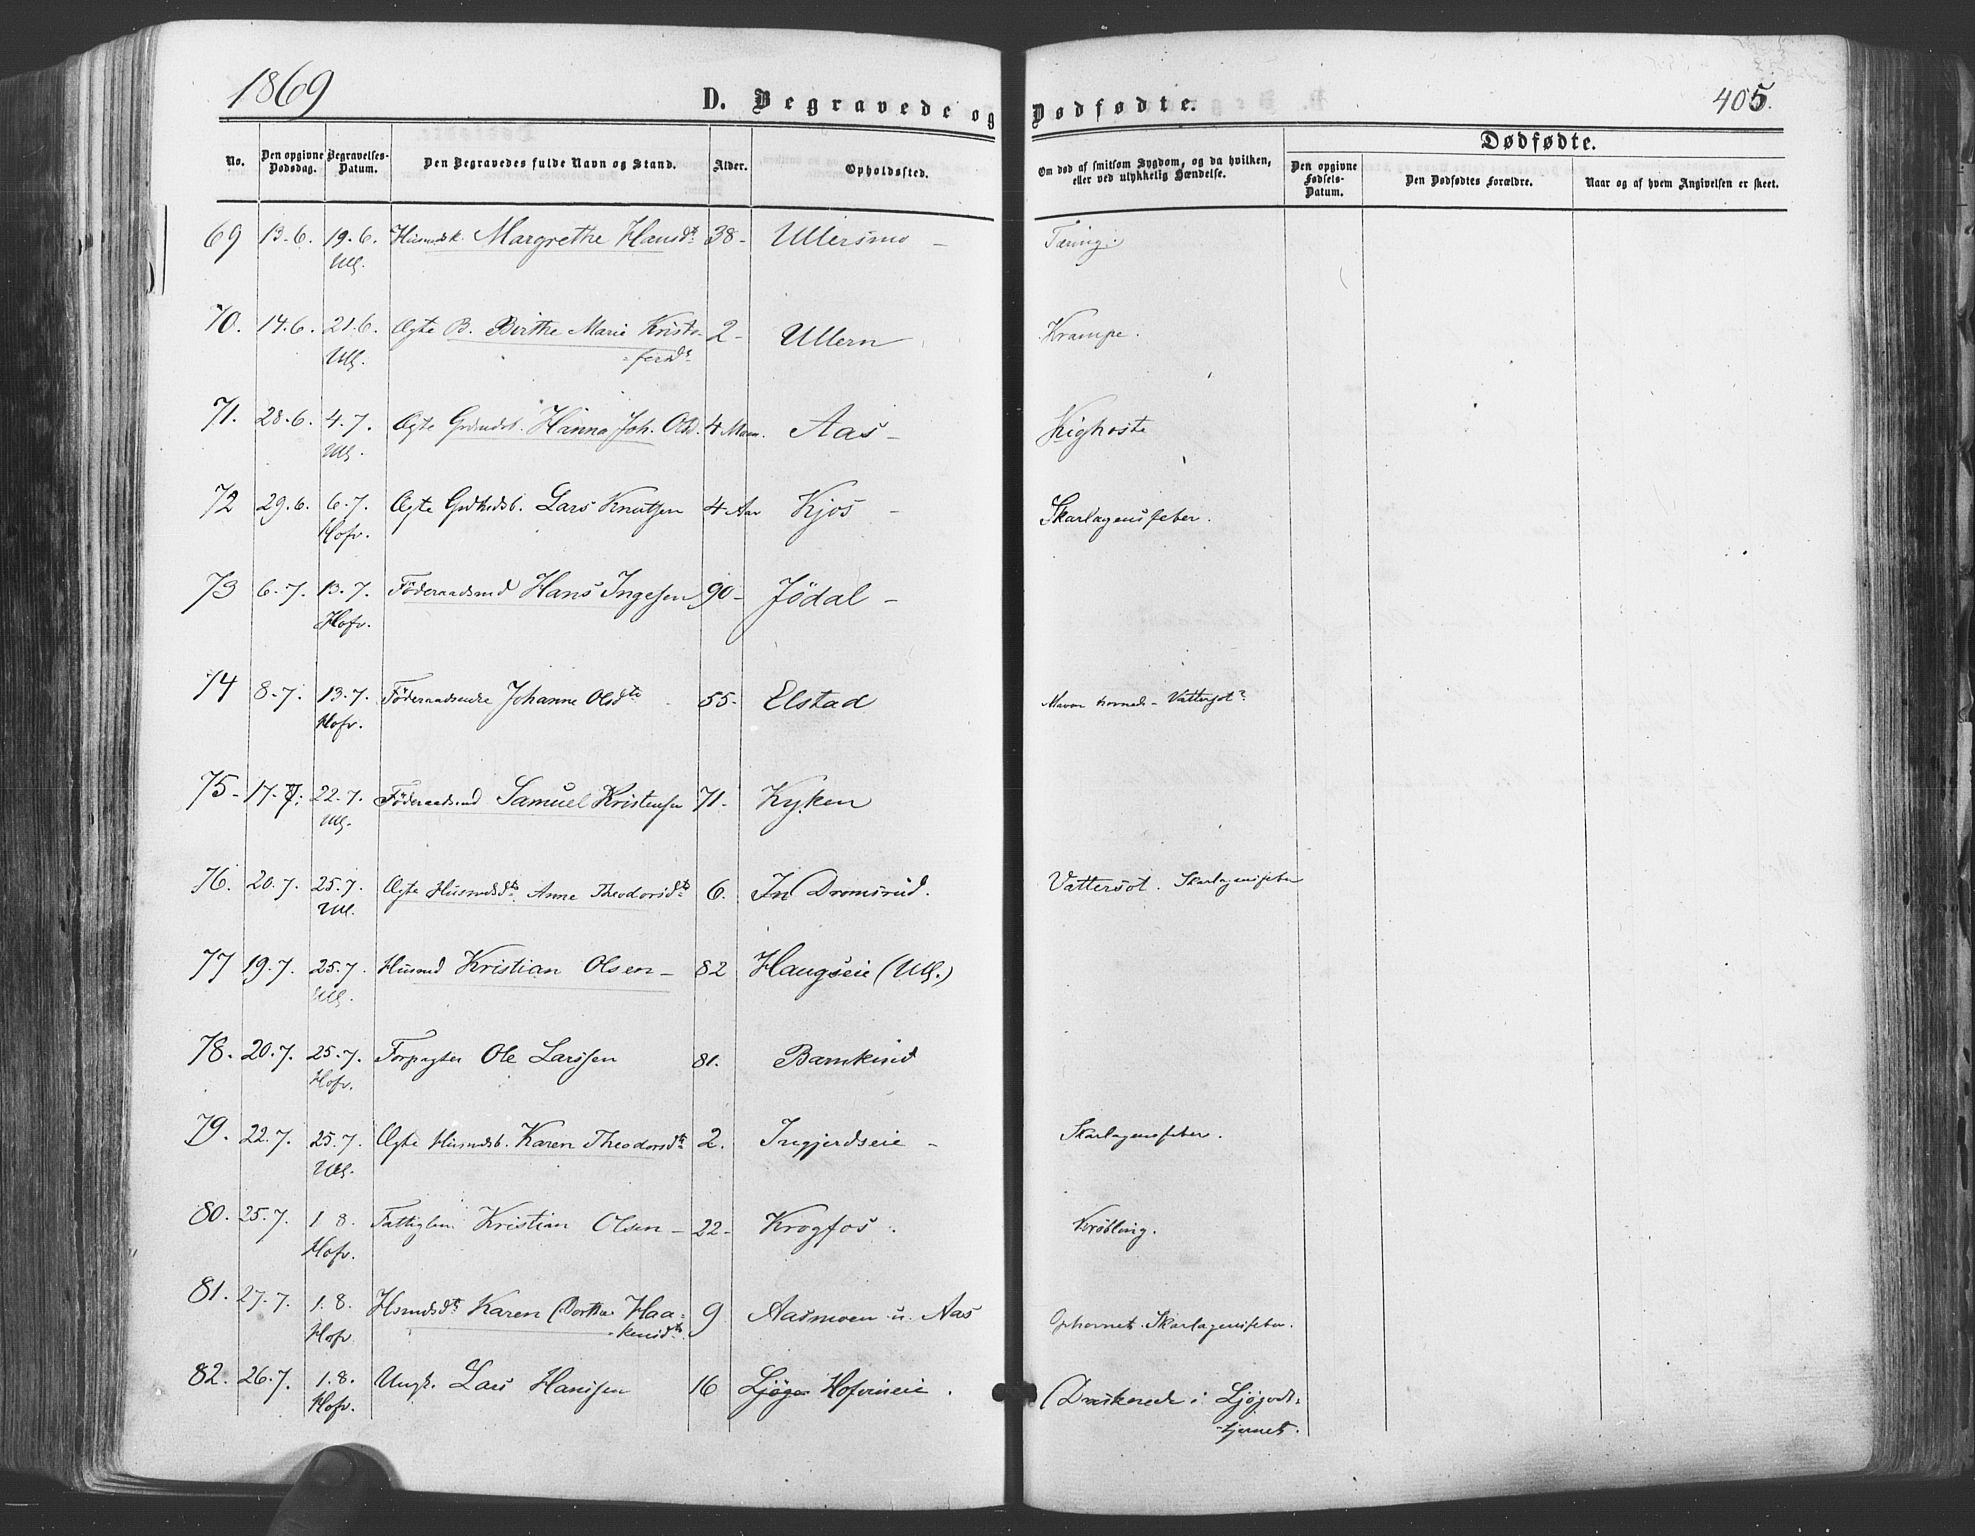 1869
D. Begravede og Dødfødte.
405.
No.
Den opgivne Dødsdag.
Begravelses-Datum.
Den Begravedes fulde Navn og Stand.
Alder.
Opholdssted.
Om død af smitsom Sygdom, og da hvilken, eller ved ulykkelig Hændelse.
Dødfødte.
Den opgivne Fødsels-Datum.
Den Dødfødtes Forældre.
Naar og af hvem Angivelsen er skeet.
69 13-6. 19.6. Husmdsk. Margrethe Hansdt 38- Ullersmo - Tæring.
Ull.
70. 14.6. 21.6. Ægte B. Birthe Marie Kristo- 2- Ullern Krampe.
Ull. ferdt
71. 28.6. 4.7. Ægte Hanna Joh. Olsd. 4 Aas - Kighoste
Ull.
72 29.6. 6.7. Ægte Lars Knutsen 4 Aar Kjos - Skarlagensfeber.
Hofv.
73 6.7. 13.7. Föderaadsmd Hans Ingesen 90- Jödal -
Hofv.
74 8.7. 13.7. Föderaadsenke Johanne Olsdt 55- Elstad Vattersot?
Hofv.
75- 17.7. 22.7. Föderaadsmd Samuel Kristensen 71- Kyken
Ull.
76. 20.7. 25.7. Ægte Husmdsdt. Anne Theodorsdt 6. In Dromsrud. Vattersot. Skarlagensfeber
Ull.
77 19.7. 25.7. Husmd Kristian Olsen - 82 Haugseie (Ull.)
Ull.
78. 20.7. 25.7. Forpagter Ole Larssen 81.
Hofv.
79. 22.7. 25.7. Ægte Husmdsb. Karen Theodorsdt 2. Ingjerdseie - Skarlagensfeber.
Ull.
80. 25.7. 1 8. Fattiglem Kristian Olsen - 22- Krogfos. Krøbling.
Hofv.
81. 27.7. 1.8. Hsmdsdt Karen Dorthea Haa- 9 Aasmoen u. Aas Skarlagensfeber.
Hofv kensdt.
82. 26.7. 1.8. Ungk. Lars Hanssen 16 Ljøgo Hofvineie. (Druknede i Ljøgodt-
Hofv. tjernet.